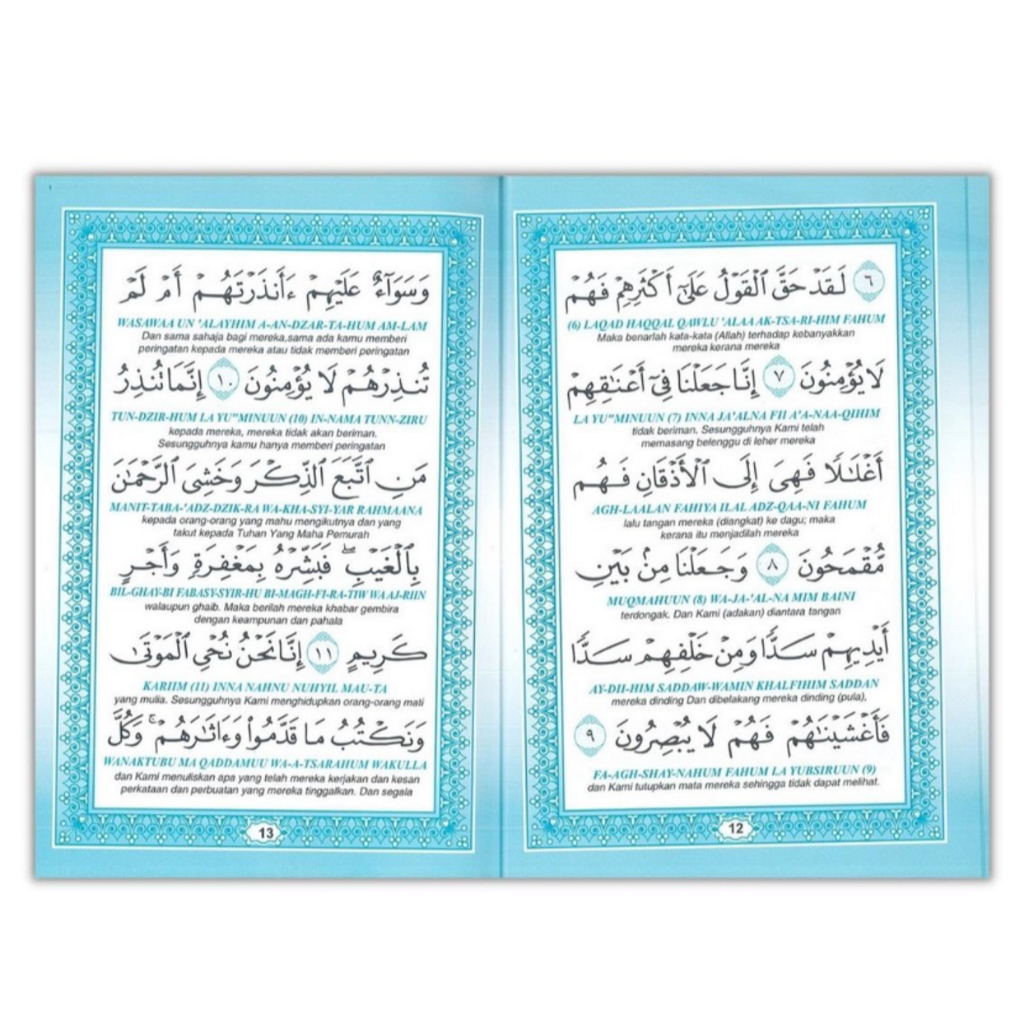 ٦ لَقَدْ حَقَّ الْقَوْلُ عَلَىٰٓ أَكْثَرِهِمْ فَهُمْ
(6) LAQAD HAQQAL QAWLU 'ALAA AK-TSA-RI-HIM FAHUM
Maka benarlah kata-kata (Allah) terhadap kebanyakkan
mereka kerana mereka
لَا يُؤْمِنُونَ ٧ إِنَّا جَعَلْنَا فِىٓ أَعْنَـٰقِهِمْ
LA YU"MINUUN (7) INNA JA'ALNA FII A'A-NAA-QIHIM
tidak beriman. Sesungguhnya Kami telah
memasang belenggu di leher mereka
أَغْلَـٰلًا فَهِىَ إِلَى الْأَذْقَانِ فَهُم
AGH-LAALAN FAHIYA ILAL ADZ-QAA-NI FAHUM
lalu tangan mereka (diangkat) ke dagu; maka
kerana itu menjadilah mereka
مُّقْمَحُونَ ٨ وَجَعَلْنَا مِنۢ بَيْنِ
MUQMAHUUN (8) WA-JA-'AL-NA MIM BAINI
terdongak. Dan Kami (adakan) diantara tangan
أَيْدِيهِمْ سَدًّا وَمِنْ خَلْفِهِمْ سَدًّا
AY-DII-HIM SADDAW-WAMIN KHALFIHIM SADDAN
mereka dinding Dan dibelakang mereka dinding (pula),
فَأَغْشَيْنَـٰهُمْ فَهُمْ لَا يُبْصِرُونَ ٩
FA-AGH-SHAY-NAHUM FAHUM LA YUBSIRUUN (9)
dan Kami tutupkan mata mereka sehingga tidak dapat melihat.
12
وَسَوَآءٌ عَلَيْهِمْ ءَأَنذَرْتَهُمْ أَمْ لَمْ
WASAWAA UN 'ALAYHIM A-AN-DZAR-TA-HUM AM-LAM
Dan sama sahaja bagi mereka,sama ada kamu memberi
peringatan kepada mereka atau tidak memberi peringatan
تُنذِرْهُمْ لَا يُؤْمِنُونَ ١٠ إِنَّمَا تُنذِرُ
TUN-DZIR-HUM LA YU"MINUUN (10) IN-NAMA TUNN-ZIRU
kepada mereka, mereka tidak akan beriman.
Sesungguhnya kamu hanya memberi peringatan
مَنِ اتَّبَعَ الذِّكْرَ وَخَشِىَ الرَّحْمَـٰنَ
MANIT-TABA-'ADZ-DZIK-RA WA-KHA-SYI-YAR RAHMAANA
kepada orang-orang yang mahu mengikutnya dan yang
takut kepada Tuhan Yang Maha Pemurah
بِالْغَيْبِ ۖ فَبَشِّرْهُ بِمَغْفِرَةٍ وَأَجْرٍ
BIL-GHAY-BI FABASY-SYIR-HU BI-MAGH-FI-RA-TIW WA AJ-RIIN
walaupun ghaib. Maka berilah mereka khabar gembira
dengan keampunan dan pahala
كَرِيمٍ ١١ إِنَّا نَحْنُ نُحْىِ الْمَوْتَىٰ
KARIIM (11) INNA NAHNU NUHYIL MAU-TA
yang mulia. Sesungguhnya Kami menghidupkan orang-orang mati
وَنَكْتُبُ مَا قَدَّمُوا۟ وَءَاثَـٰرَهُمْ ۚ وَكُلَّ
WANAKTUBU MA QADDAMUU WA-A-TSARAHUM WAKULLA
dan Kami menuliskan apa yang telah mereka kerjakan dan kesan
perkataan dan perbuatan yang mereka tinggalkan. Dan segala
13